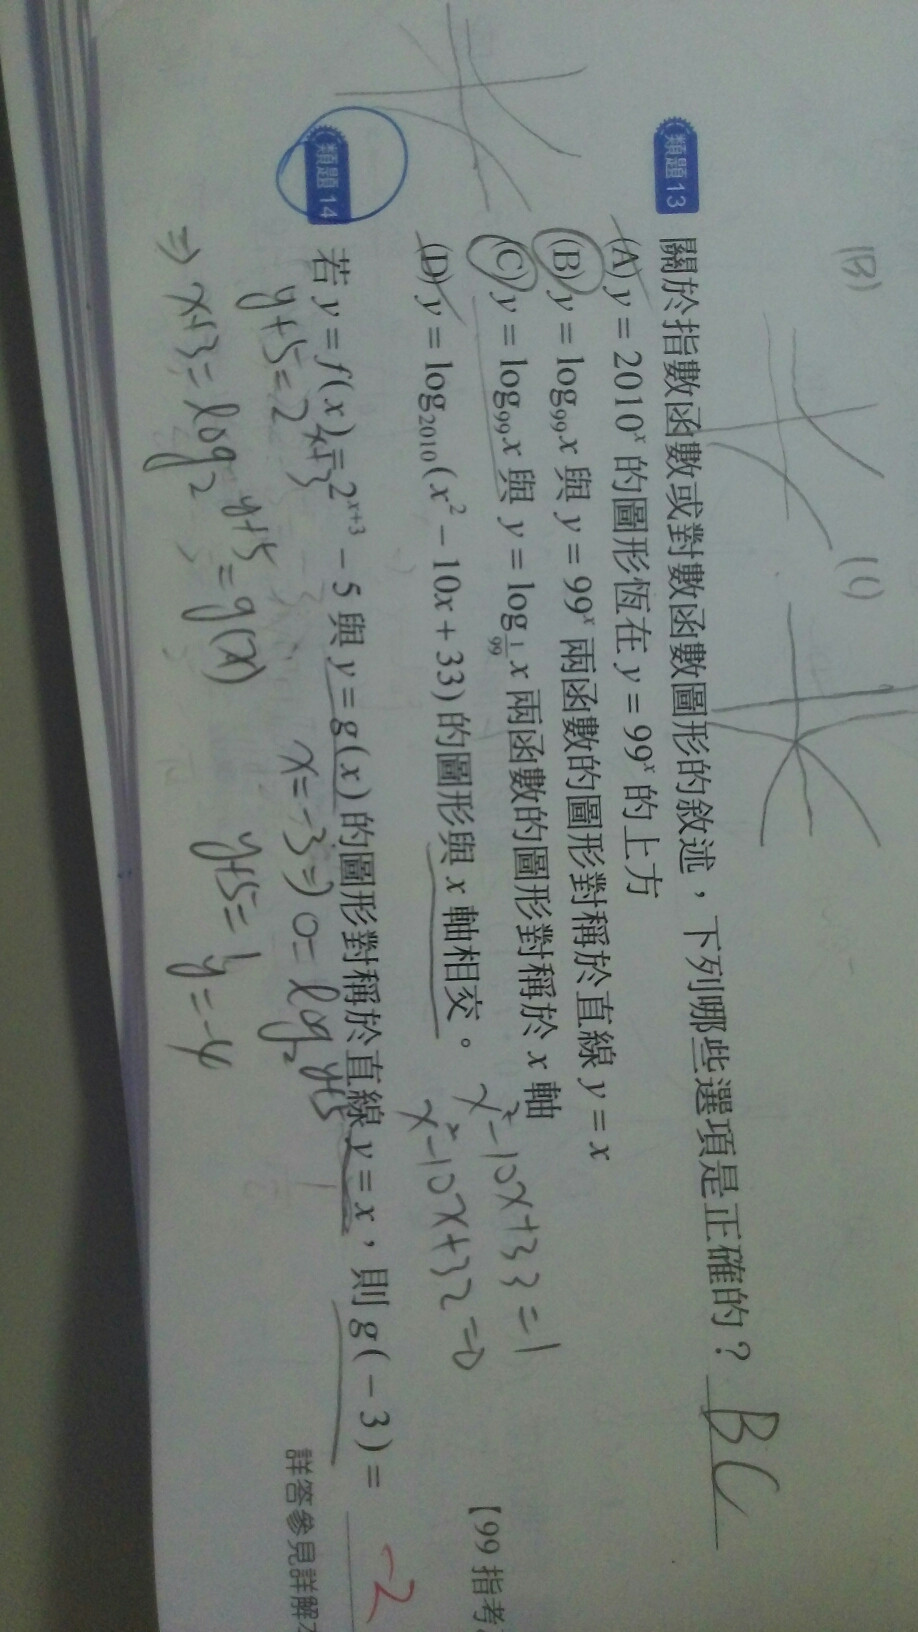 (B)
(C)
類題 13 關於指數函數或對數函數圖形的敘述，下列哪些選項是正確的？ BC
(A) y = 2010^x 的圖形恆在 y = 99^x 的上方
(B) y = log₉₉x 與 y = 99^x 兩函數的圖形對稱於直線 y = x
(C) y = log₉₉x 與 y = log_{1/99} x 兩函數的圖形對稱於 x 軸
(D) y = log₂₀₁₀(x² − 10x + 33) 的圖形與 x 軸相交。
【99 指考
x²-10x+33=1
x²-10x+32=0
類題 14 若 y = f(x) = 2^{x+3} − 5 與 y = g(x) 的圖形對稱於直線 y = x，則 g(−3) = -2
y+5=2^{x+3}
x=-3⇒0=log₂ y+5
⇒ x+3=log₂ y+5 = g(x)
y+5=1
y=-4
詳答參見詳解